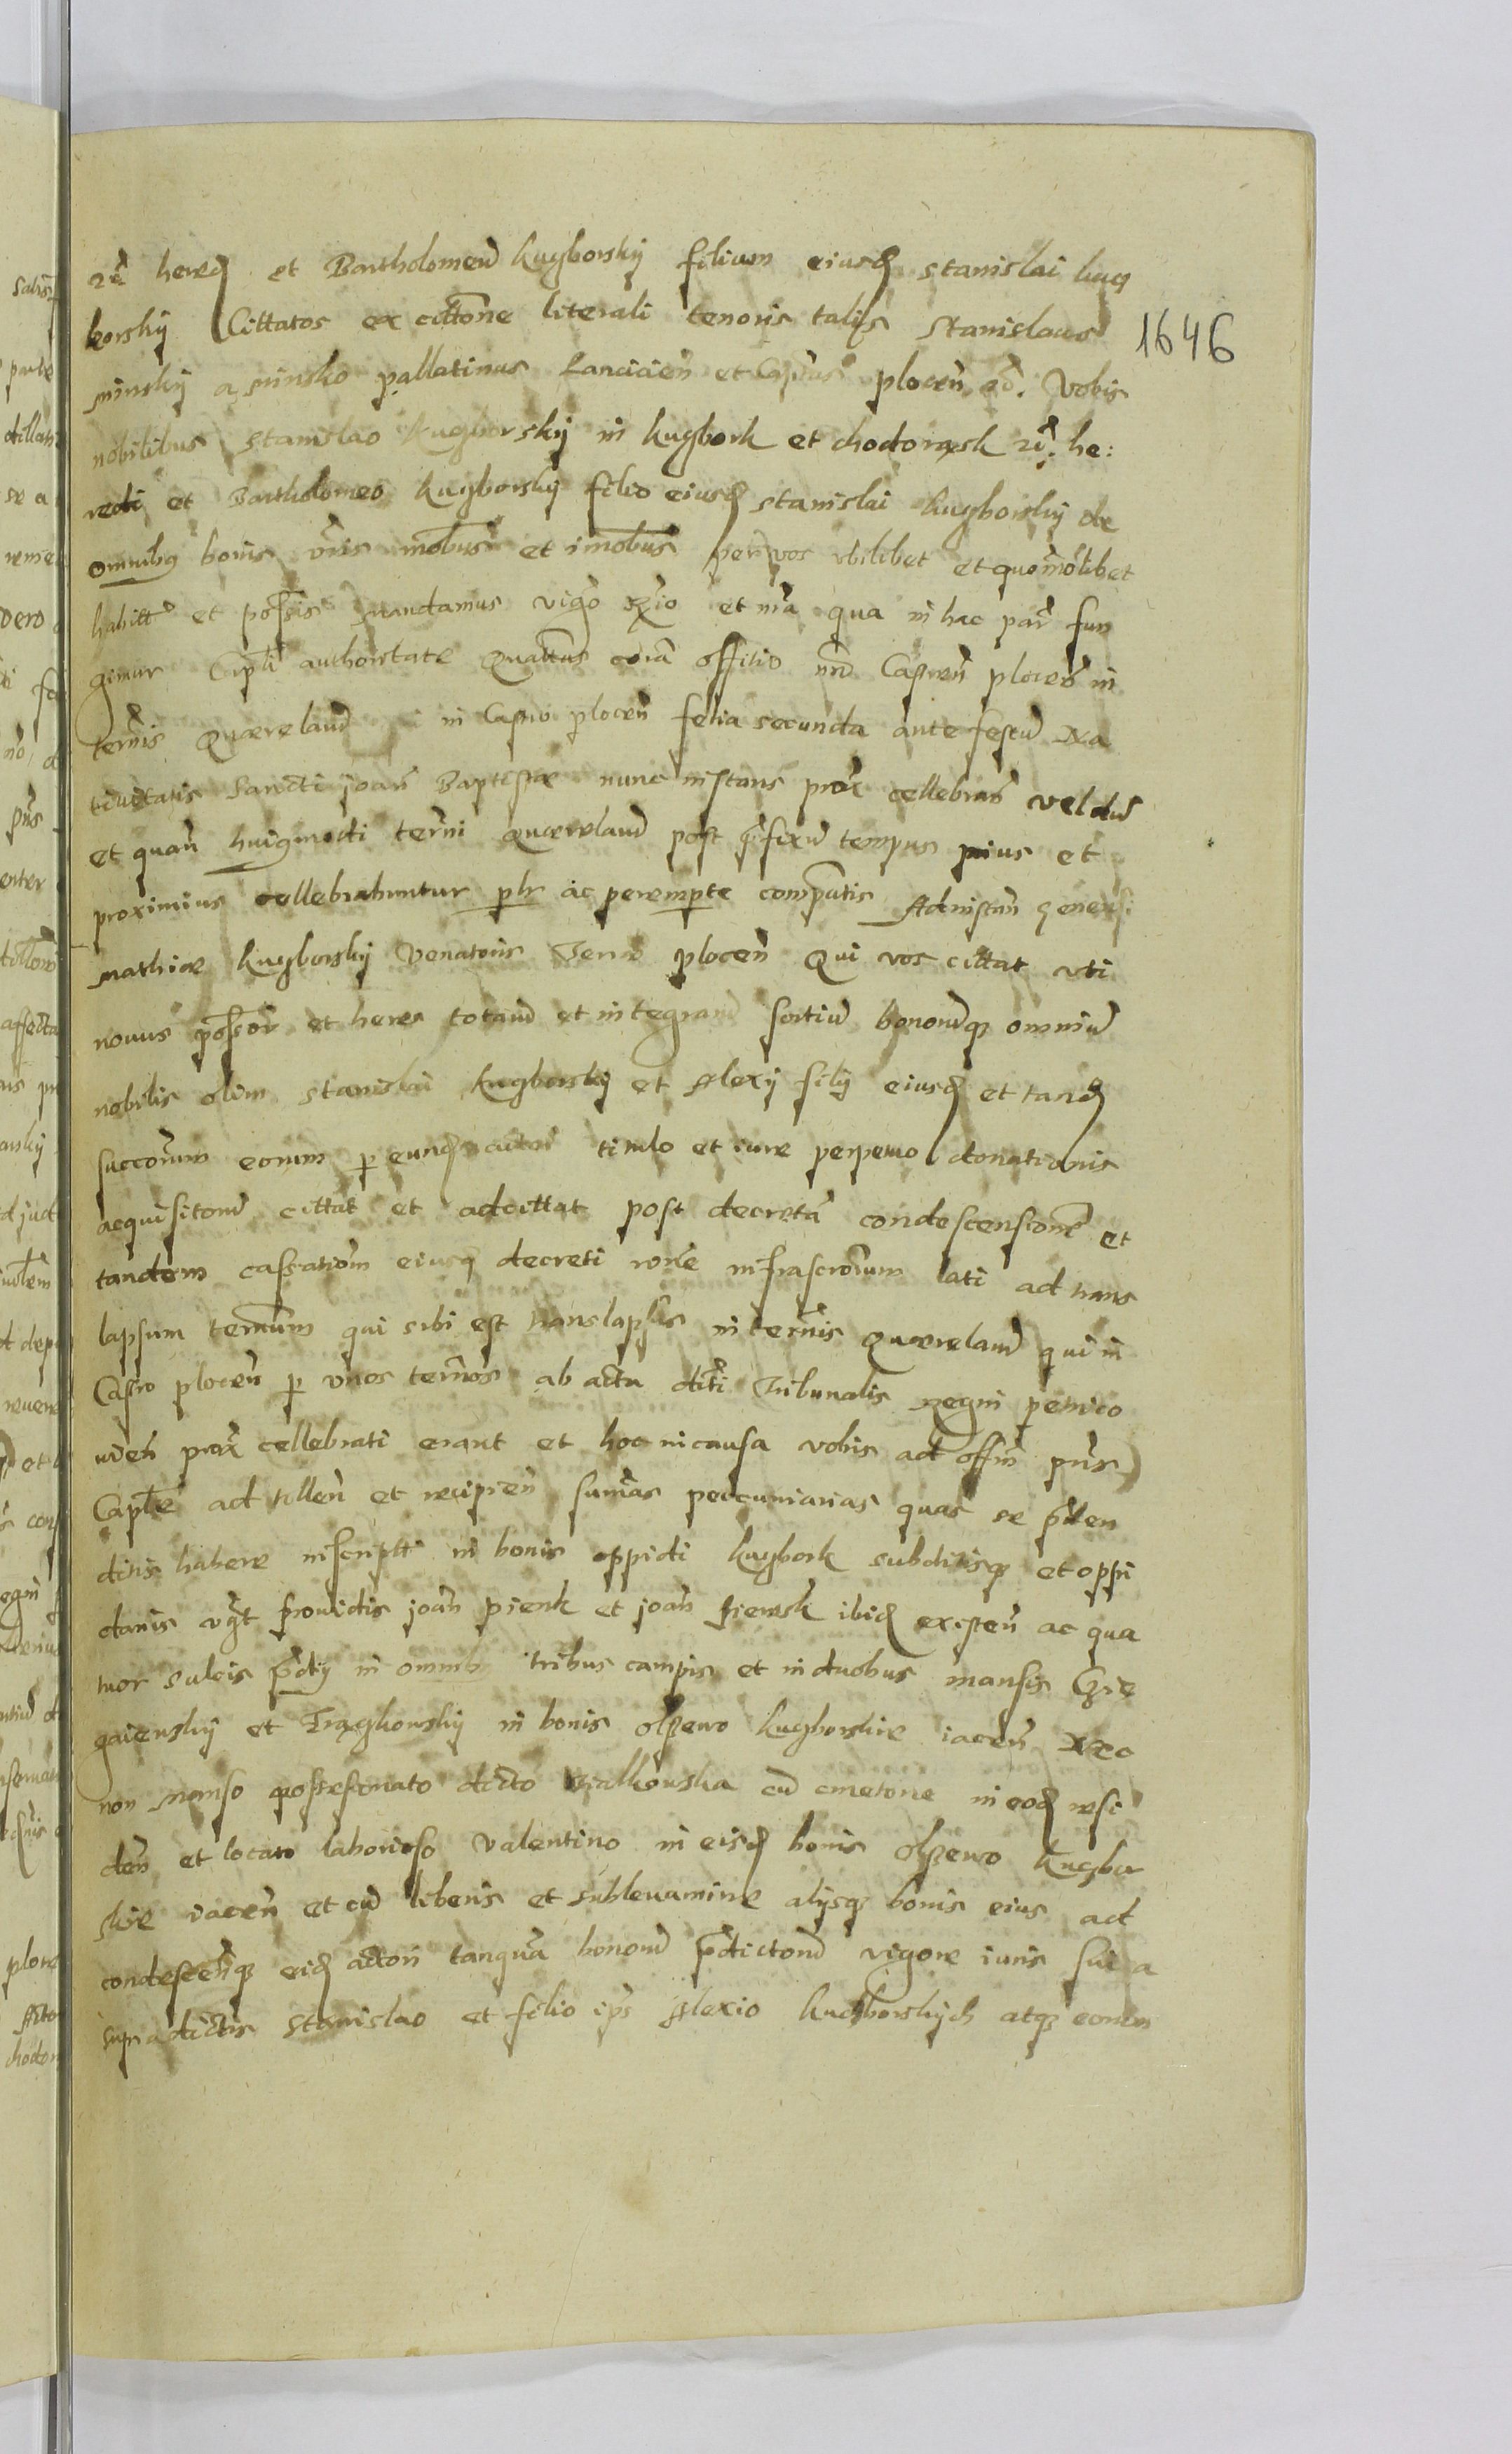 hered et Bartholomeu Kugborskij filium eiusd Stanislai Kug
borskij Cittatos ex cittone literali tenoris talis Stanislaus
Minskij a Minsko pallatinus Lancicien et Capnus plocen. Vobis
nobilibus Stanislao Kugborskij in Kugbork et Chodorąsk he:
redi et Bartholomeo Kugborskij filio eiusd Stanislai Kugborskij de
omnibq bonis vris mobus et imobus per vos vbilibet et quomolibet
habitt et possis mandamus vigo et nra qua in hac par fun
gimur Cipli authoritate Quattus cora offitio nro Capnen plocen in
ternis Quereland in Castro plocen feria secunda ante festu Na
tiuitatis Sancti Joan Baptistæ nunc instans prox cellebran vel du
et quan huigmodi terni quæreland post pfixu tempus prius et
proximius cellebrabuntur plr ac perempte compatis Ad instan generosi
Mathiæ Kugborskij Venatoris Terræ plocen Qui vos cittat uti
nouus possor et heres totaru et integraru sortiu bonorumq omniu
nobilis olim Stanislai Kugborskij et Alexij filij eiusd et tand
succorum eorum p eund actore titulo et iure perpetuo donationis
acquisitoru cittat et adcittat post decreta condescensione et
tandem cassationem eiusd decreti rone infrascrorum lati ad trans
lapsum ternum qui sibi est translapsus in ternis quæreland qui in
Castro plocen p vnos ternos ab actu dicti Tribunalis Regni petrico
uien prox cellebrati erant et hoc in causa vobis ad offm pns
Caple ad tollen et recipien sumas peccuniarias quas se prten
ditis habere inscriptt in bonis oppidi Kugbork subditisq et oppi
danis vgt prouidis Joan Pienk et Joan ibid existen ac qua
tuor sulcis pdij in omnib tribus campis et in duobus mansis Grze
gaienskij et in bonis Olszewo Kugborskie iacen Nec
non manso possessionato dicto cu cmetone in eod resi
den et locato laborioso Valentino in eisd bonis Olszewo Kugbor
skie iacen et cu liberis et subleuamine alijsq bonis eius ad
condescenq eid actori tanqua bonoru pdictoru vigore iuris sui a
supradictis Stanislao et filio ips Alexio Kugborskych atq eorum
1646